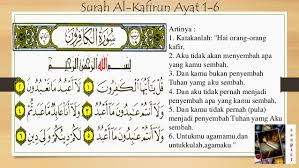 Surah Al-Kafirun Ayat 1-6
سُورَةُ الْكَافِرُونَ
بِسْمِ اللَّهِ الرَّحْمَٰنِ الرَّحِيمِ
قُلْ يَا أَيُّهَا الْكَافِرُونَ ۝ لَا أَعْبُدُ مَا تَعْبُدُونَ
وَلَا أَنْتُمْ عَابِدُونَ مَا أَعْبُدُ ۝ وَلَا أَنَا عَابِدٌ مَا عَبَدْتُمْ
وَلَا أَنْتُمْ عَابِدُونَ مَا أَعْبُدُ ۝ لَكُمْ دِينُكُمْ وَلِيَ دِينِ
Artinya :
1. Katakanlah: "Hai orang-orang
kafir,
2. Aku tidak akan menyembah apa
yang kamu sembah.
3. Dan kamu bukan penyembah
Tuhan yang aku sembah.
4. Dan aku tidak pernah menjadi
penyembah apa yang kamu sembah,
5. Dan kamu tidak pernah (pula)
menjadi penyembah Tuhan yang Aku
sembah.
6. Untukmu agamamu,dan
untukkulah,agamaku."